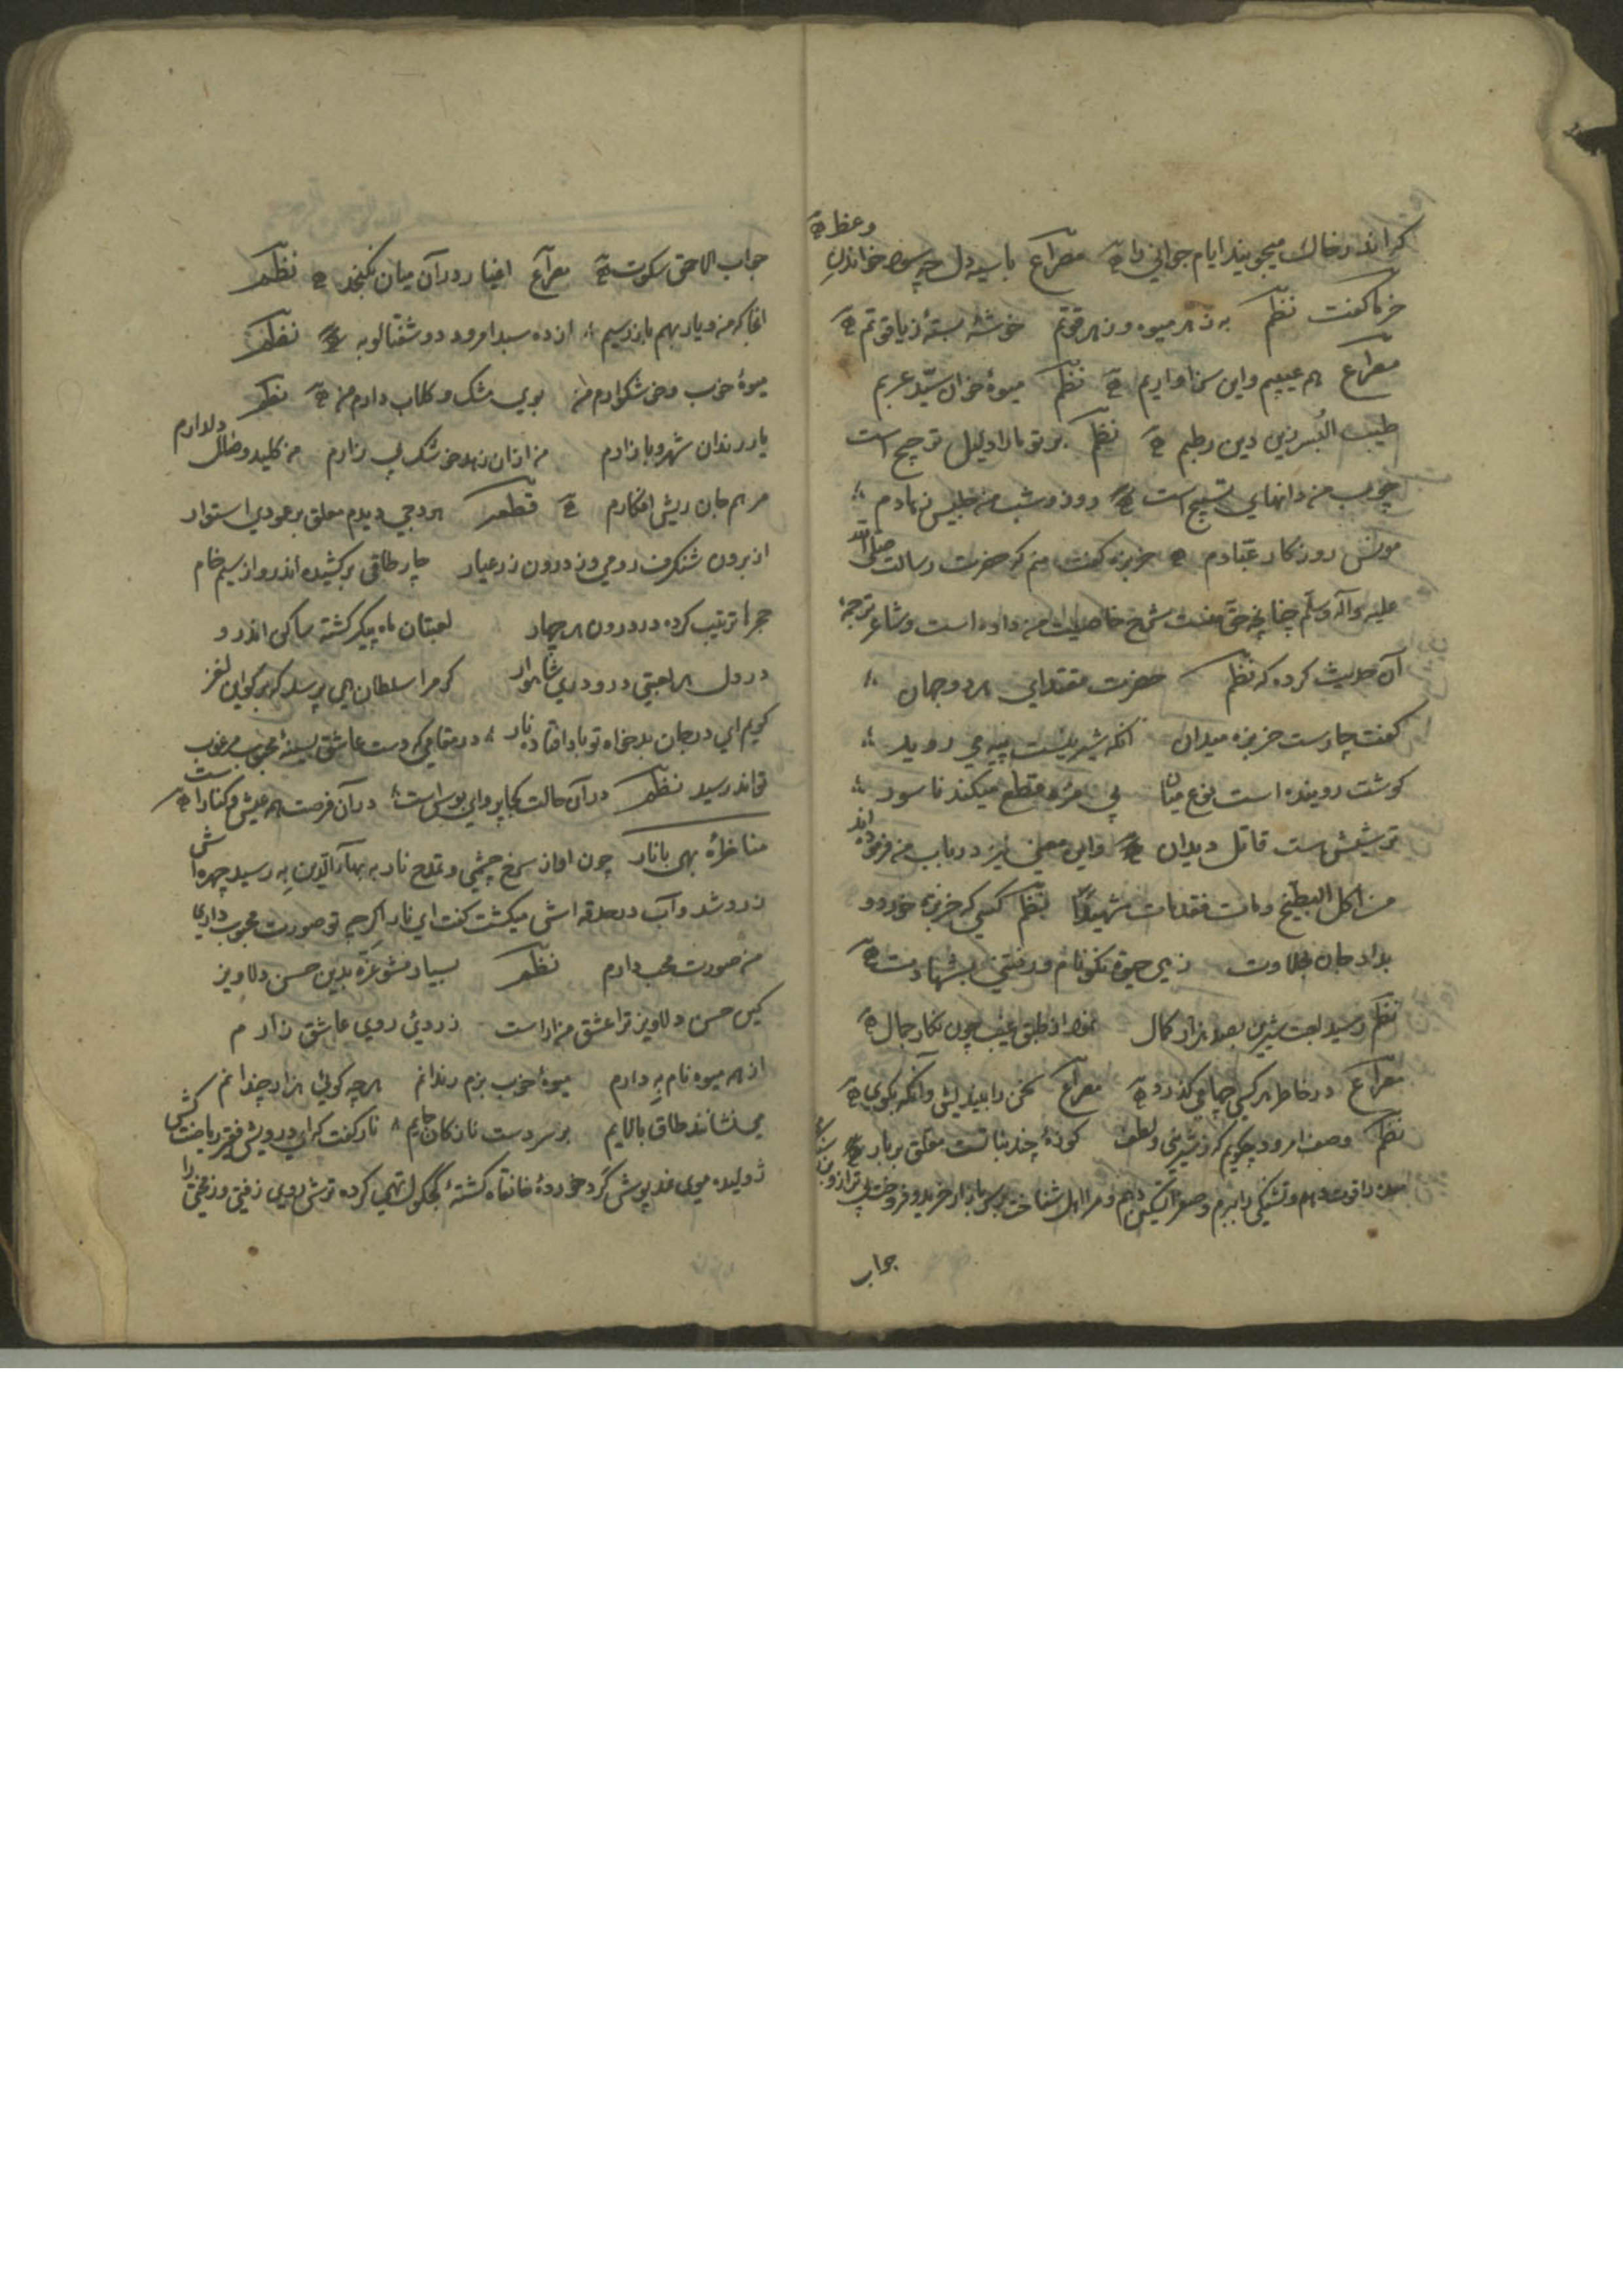 که اندر خاک میجویند ایام جوانی را مصراع با سیه دل چه سود خواندن وعظ
خرما گفت نظم به ز هر میوه و ز هر قوتم خوشهٔ بستهٔ ز یاقوتم
مصراع هم عیبیم واین سزاواریم نظم میوهٔ خوان سیّد عربم
طیب البُسر زین دین رطبم نظم بر تو ما را دلیل ترجیح است
چوب من دانهای تسبیح است روز و شب من جلیس زهادم
مونس روزکار عبّادم خربزه گفت منم که حضرت رسالت صلی الله
علیه وآله وسلّم چنانچه حق منست شرح خاصیت من داده است وشاعر ترجمهٔ
آن حدیث کرده که نظم حضرت مقتدای هر دو جهان
گفت چارست خربزه میدان آنکه شیرینست پیه می روید
گوشت روینده است نوع میان بی مزه قطع میکند ناسور
ترشیش ست قاتل دیدان واین معنی نیز در باب من فرموده اند
من اکل البطیخ ومات فقد مات شهیدًا نظم کسی که خربزه خورد و
بداد جان بحلاوت زهی حیوة نکونام و رفتنی بشهادت
نظم رسید لعبت شیرین بصد هزار کمال نمود از طبق غیب چون نکار جمال
مصراع در خاطر هر کسی چها می گذرد مصراع سخن را بیندیش وآنگه بگوی
نظم وصف امرود چکویم که ز شیرینی ولطف کوزهٔ چند نباتست معلق بر بار
قوت دهم وتشنگی را ببرم وصفرا تسکین دهم ومرا اهل شناخت بر سر بازار خرید وفروخت
جواب
جواب الاحمق سکوت مصراع اغیار در آن میان نگنجد نظم
آنجا که من و یار بهم باز رسیم از ده سبد امرود دو شفتالو به نظم
میوهٔ خوب وخوشکوارم من بوی مشک و کلاب دارم من نظم
یار رندان شهر و بازارم من از آن زهد خوشک بیزارم من کلید وصال دلدارم
مرهم جان ریش افکارم قطعه برجی دیدم معلق بر عمودی استوار
از برون شنگرف رومی وز درون زر عیار چار طاقی برکشیده اندرو از سیم خام
حجرها ترتیب کرده در درون هر چهار لعبتان ماه پیکر گشته ساکن اندر و
در دل هر لعبتی در و دری شاهوار کر مرا سلطان می پرسد که برگوی این لغز
گویم ای در جان بدخواه تو بادا فتاده نار در مقامی که دست عاشق بسینهٔ محبوب مرغوب
تواند رسید نظم در آن حالت کجا پروای بوس است در آن فرصت همه عیش و کنار است
مناظرهٔ بهی با نار چون آواز سرخ چشمی و تمدح نار به بهاءالدین به رسید چهره اش
زرد شد وآب در حدقه اش میگشت گفت ای نار اگر چه تو صورت محبوب داری
من صورت محب دارم نظم بسیار مشو غرّه بدین حسن دلاویز
کین حسن دلاویز ترا عشق من آراست زردئ روی عاشق زارم
از هر میوه نام به دارم میوهٔ خوب بزم رندانم هر چه گوئی هزار چندانم
می نشانند طاق بالایم بر سر دست نازکان جایم نار گفت که ای درویش فقیر ریاضت کش
ژولیده موی نمد پوش گرد خوردهٔ خانقاه گشتهٔ کجکول تهی کرده ترش روی زفتی و زمختی را